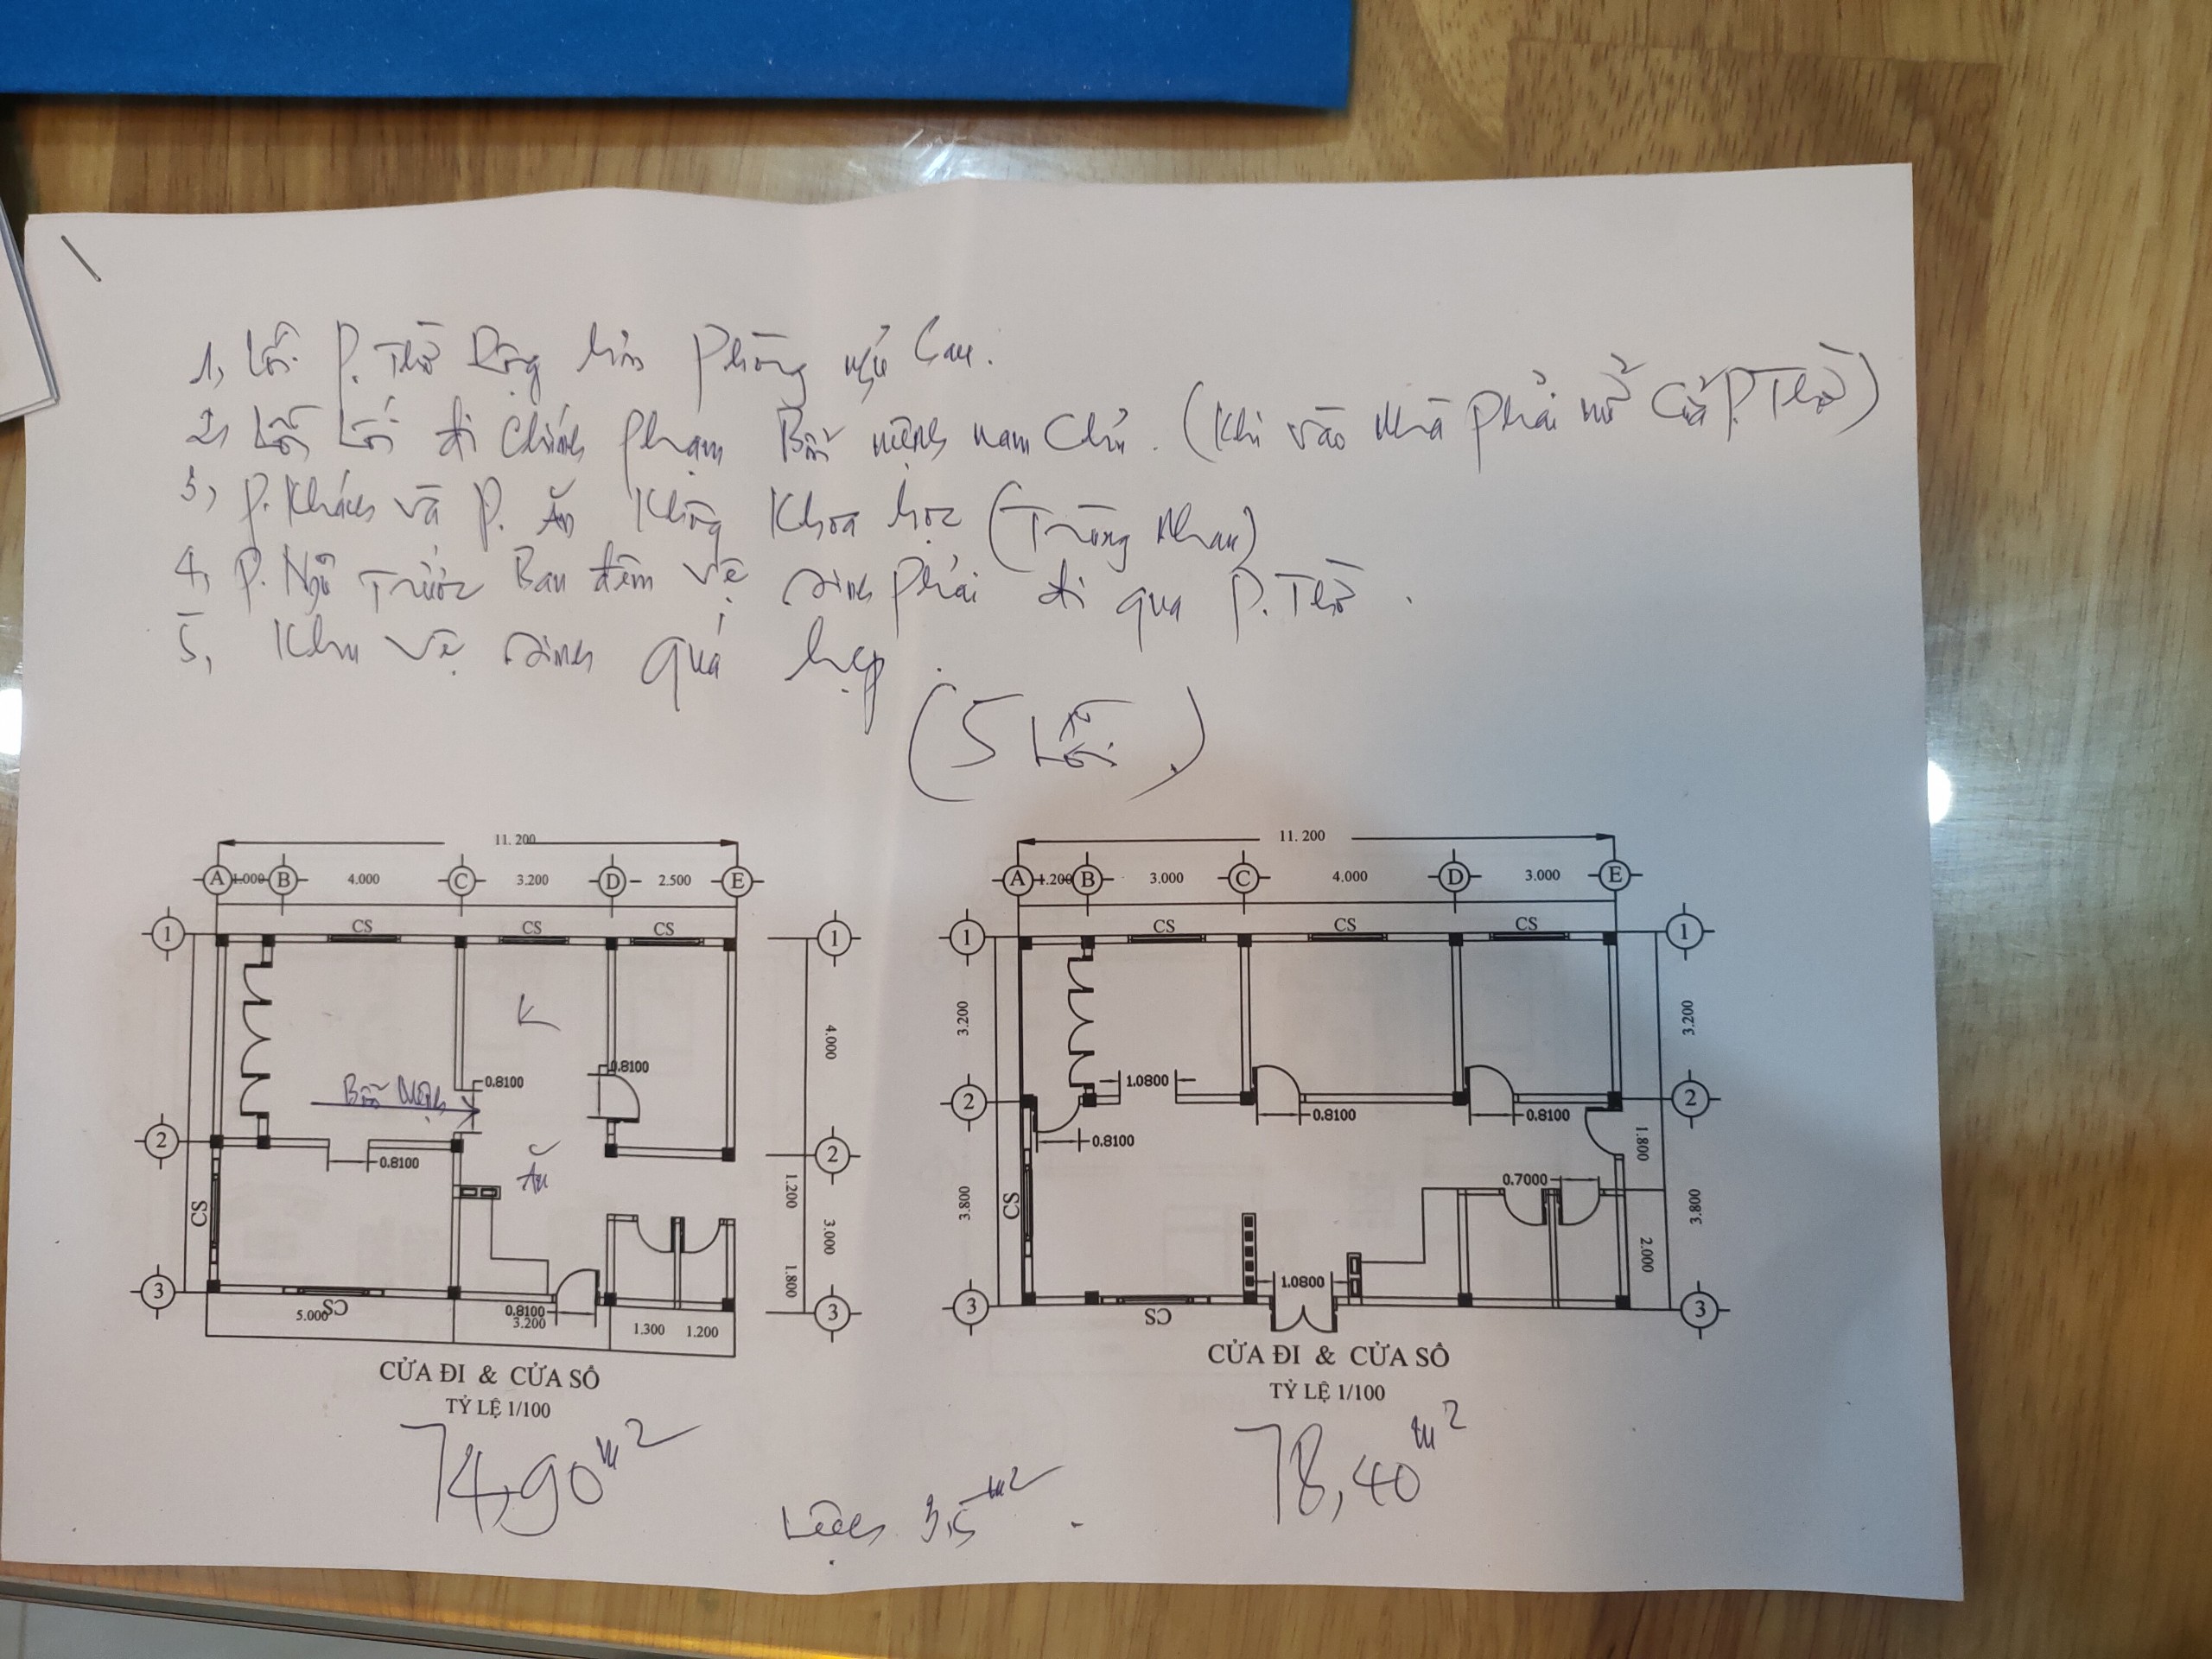 1, Lỗi P. Thờ Rộng hơn Phòng ngủ sau.
2, Lỗi Lối đi chính phạm Bổn mệnh nam Chủ. (Khi vào nhà phải mở Cửa P. Thờ)
3, P. Khách và P. Ăn Không Khoa học (Trùng Nhau)
4, P. Ngủ Trước Ban đêm vệ sinh phải đi qua P. Thờ.
5, Khu vệ sinh quá hẹp.
(5 Lỗi.)
11. 200
A 1.000 B 4.000 C 3.200 D 2.500 E
CS CS CS
1 1
K
4.000
0.8100 0.8100
Bổn Mệnh
2 2
0.8100
Ăn
CS
1.200
3.000
1.800
3 3
CS
5.000 0.8100
3.200 1.300 1.200
CỬA ĐI & CỬA SỔ
TỶ LỆ 1/100
74,90 m2
11. 200
A 1.200 B 3.000 C 4.000 D 3.000 E
CS CS CS
1 1
3.200 3.200
1.0800
2 2
0.8100 0.8100 0.8100
1.800
0.7000
3.800 CS 3.800
2.000
1.0800
3 3
CS
CỬA ĐI & CỬA SỔ
TỶ LỆ 1/100
78,40 m2
Lệch 3,5 m2.